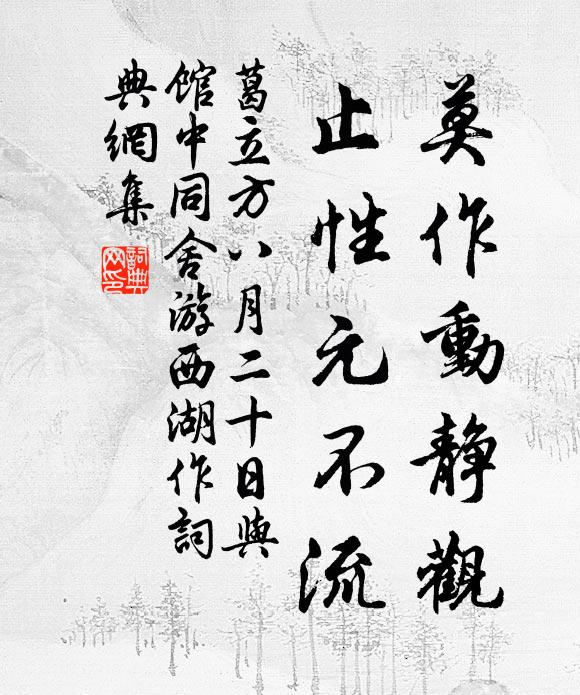 莫作動靜觀
止性元不流
葛立方八月二十日與
館中同舍游西湖作詞
典網集
詞典網印